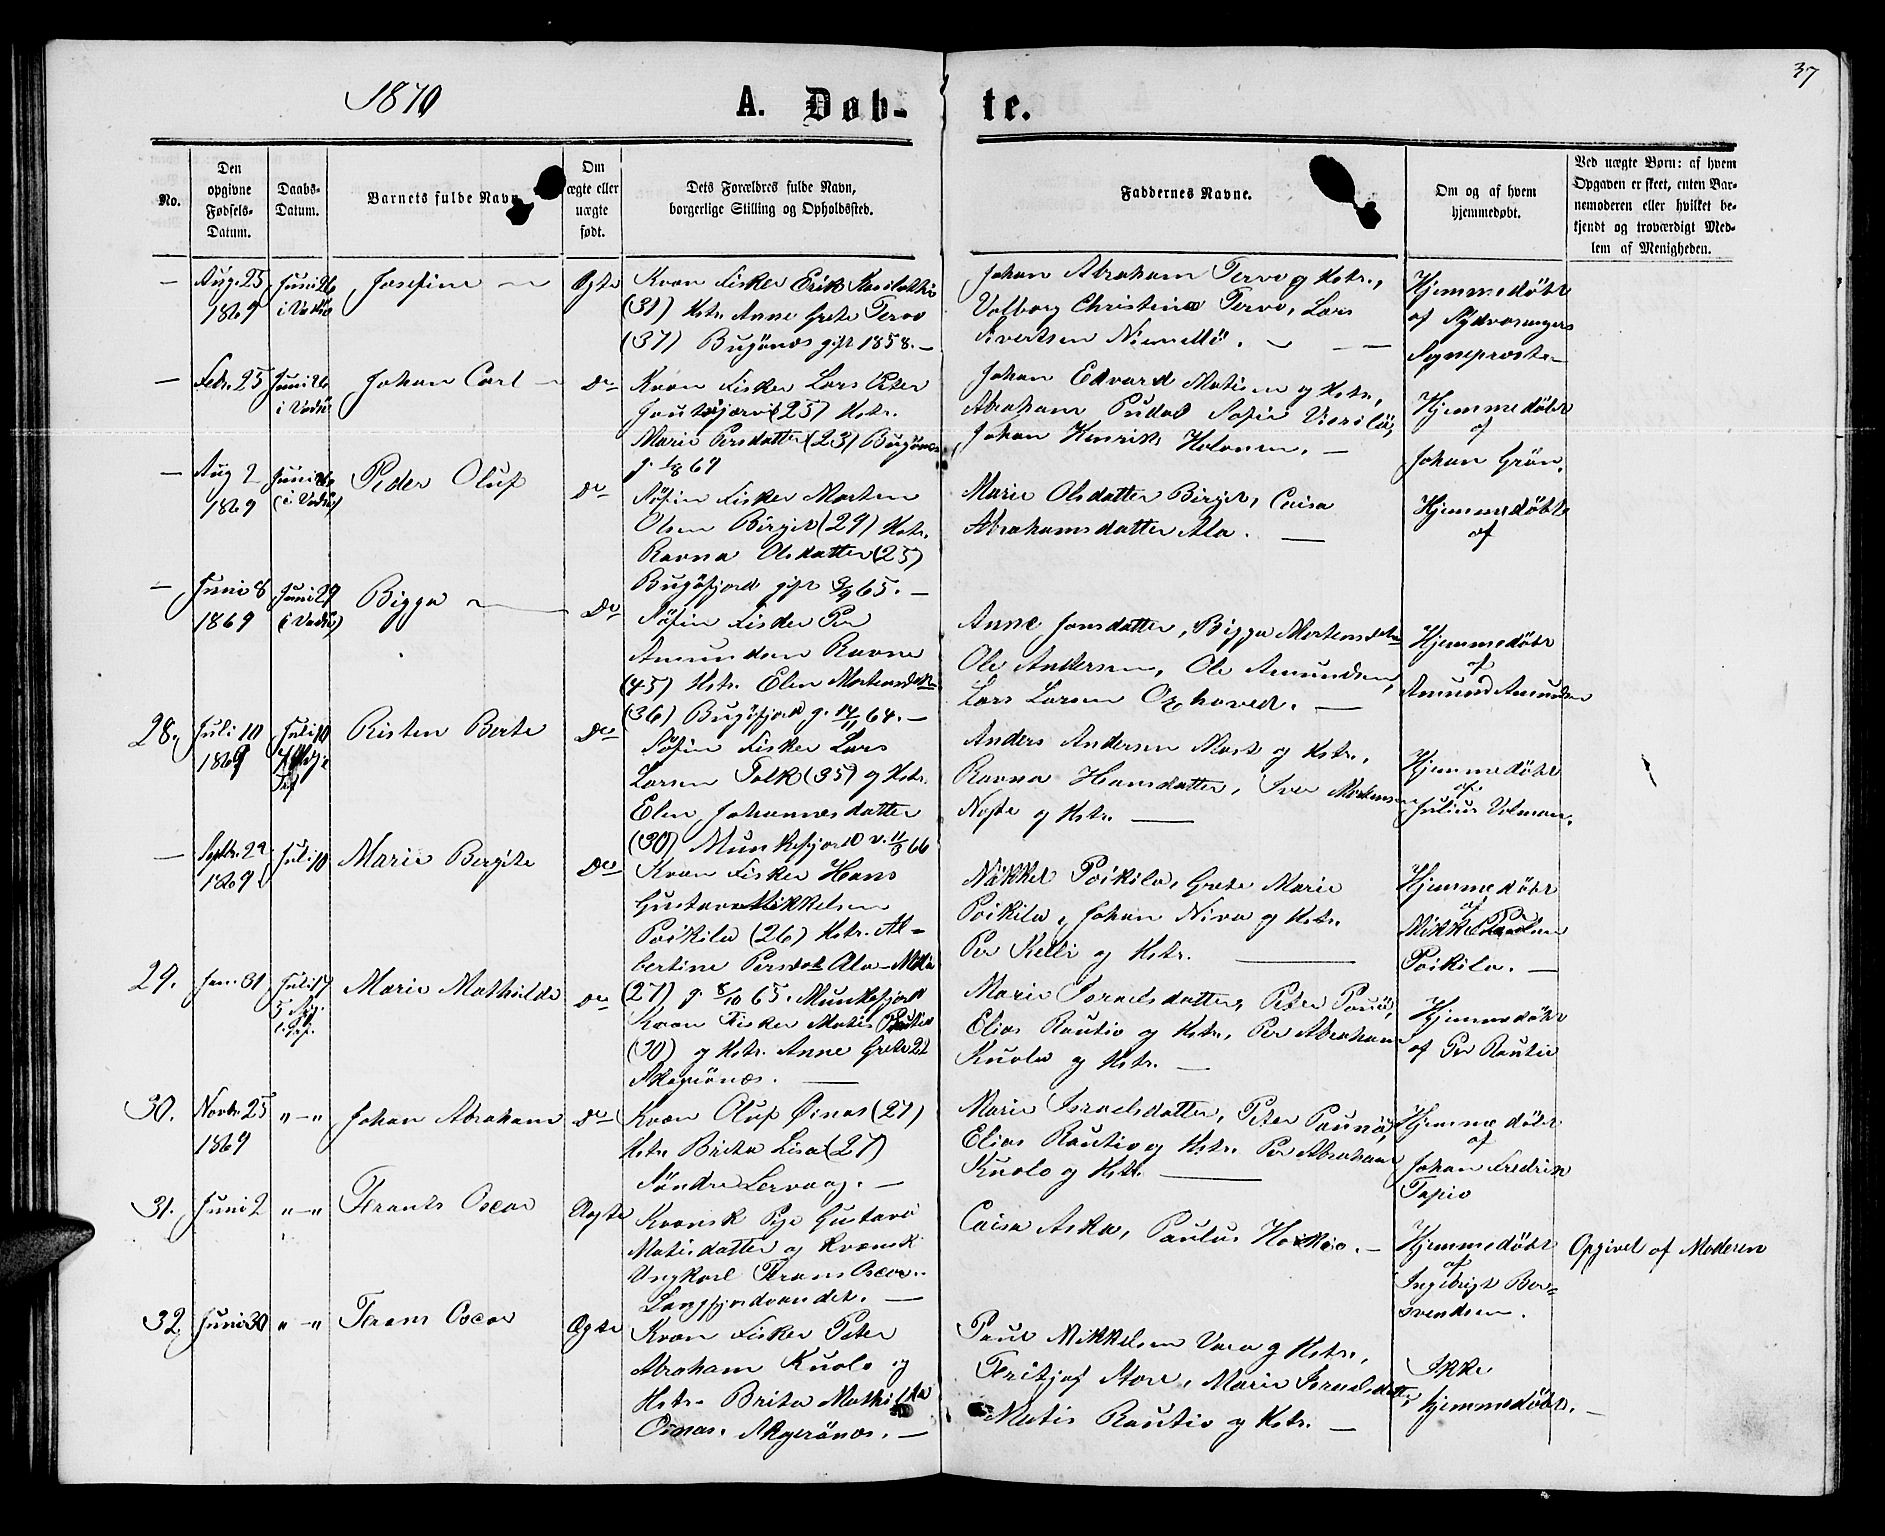 37
1870
A. Døb-
te.
No.
Den
opgivne
Fødsels-
Datum.
Daabs-
Datum.
Barnets fulde Navn.
Om
ægte eller
uægte
født.
Dets Forældres fulde Navn,
borgerlige Stilling og Opholdssted.
Faddernes Navne.
Om og af hvem
hjemmedøbt.
Ved uægte Børn: af hvem
Opgaven er skeet, enten Bar-
nemoderen eller hvilket be-
kjendt og troværdigt Med-
lem af Menigheden.
—
Aug. 25
1869
Juni 26
i Vadsø
Josefine —
Ægte
Kvæn Fisker Erik
(31) Hstr. Anne Grete Tervo
(37) Bugönæs gift 1858. —
Johan Abraham Tervo og Hstr.,
Volborg Christina Tervo, Lars
Sivertsen Niemellö. — —
Hjemmedøbt
af Sydvarangers
Sogneprest —
—
Febr. 25
Juni 26
i Vadsø
Johan Carl —
Do
Kvæn Fisker Lars Peter
(25) Hstr.
Marie Persdatter (23) Bugönæs
g. 1/8 69
Johan Edvard Matisen og Hstr.,
Abraham Sofie
Johan Henrik Holonen. —
Hjemmedøbt
af
Johan Grön.
—
Aug 2
1869
Juni 26
(i Vadsø)
Peder Oluf
Do
Söfin Fisker Morten
Olsen Birget (29) Hstr.
Ravna Olsdatter (25)
Bugöfjord gift 3/9 65. —
Marie Olsdatter Birget, Caisa
Abrahamsdatter Ala. —
Hjemmedøbt
af
—
Juni 8
1869
Juni 29
(i Vadsø)
Bigga —
Do
Söfin Fisker Per
Amundsen Ravna
(45) Hstr. Elen Mortensdatter
(36) Bugöfjord g. 14/11 64. —
Anne Jonsdatter, Bigga Mortensdatter
Ole Andersen, Ole Amundsen,
Lars Larsen Oxhoved. —
Hjemmedøbt
af
Amund Amundsen
28.
Juli 10
1869
Juli 10
Risten Berte
Do
Söfin Fisker Lars
Larsen Tolk (35) og Hstr.
Elen Johannesdatter
(30) Munkefjord v. 11/3 66
Anders Andersen Mast og Hstr.,
Ravna Hansdatter, Iver Mortensen
Noste og Hstr. —
Hjemmedøbt
af
Julius Volman.
—
Septbr. 29
1869
Juli 10
Marie Bergite
Do
Kvæn Fisker Hans
Gustav Mikkelsen
Poikila (26) Hstr. Al-
bertine Persdatr Ala
(27) g. 8/10 65. Munkefjord
Nikkel Poikila, Grete Marie
Poikila, Johan Niva og Hstr.
Per Kelli og Hstr. —
Hjemmedøbt
af
Mikkel
Poikila. —
29.
Jan. 31
Juli 17
Marie Mathilde
Do
Kvæn Fisker Matis Rautio
(30) og Hstr. Anne Grete 21
Akgerönæs. —
Marie Israelsdatter, Peter Paunö,
Elias Rautio og Hstr., Per Abraham
Kuolo og Hstr. —
Hjemmedøbt
af Per Rautio
30.
Novbr. 25
1869
" — "
Johan Abraham
Do
Kvæn Oluf Öinas (27)
Hstr. Brita Lisa (27)
Söndre Lervaag. —
Marie Israelsdatter, Peter Paunö,
Elias Rautio og Hstr. Per Abraham
Kuolo og Hstr. —
Hjemmedøbt
af
Johan Fredrik
Tapio
31.
Juni 2
" — "
Frants Oscar
Uægte
Kvænsk Pige Gustava
Matisdatter og Kvænsk
Ungkarl Frans Oscar.
Langfjordvandet. —
Caisa Aska, Paulus Heikkio. —
Hjemmedøbt
af
Ingebrigt Bar-
svendsen.
Opgivet af Moderen
32.
Juni 30
" — "
Frans Oscar
Ægte
Kvæn Fisker Peter
Abraham Kuolo og
Hstr. Brita Mathilda
Oinas. Akgerönæs. —
Paul Mikkelsen Vara og Hstr.,
Fritjof Store, Marie Israelsdatter,
Matis Rautio og Hstr. —
Ikke
hjemmedøbt. —